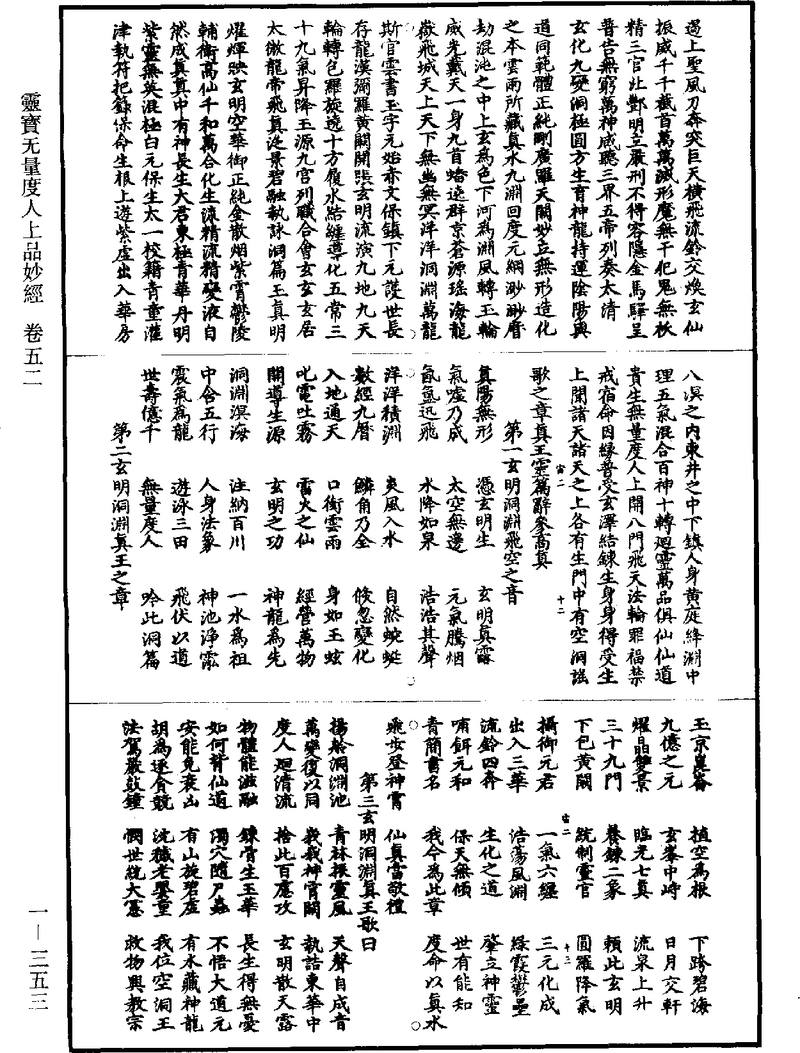 遏上聖風刀奔突巨天橫飛流鈴交煥玄仙
振威千千截首萬萬滅形魔無干犯鬼無祅
精三官灶酆明立嚴刑不得容隱金馬驛呈
普告無窮萬神咸聽三界五帝列奏太清
玄化九變洞極圓方生育神龍持運陰陽與
道同範體正純剛廣羅天閣妙立無形造化
之本雲雨所藏真水九淵回度元綱渺渺曆
劫混沌之中上玄為色下河為淵風轉玉輪
威光戴天一身九首蟠遶群京蒼源瑤海龍
嶽飛城天上天下無幽無冥洋洋洞淵萬龍
斯官雲書玉字元始赤文保鎮下元護世長
存龍漢彌羅黃闕開張玄明流演九地九天
輪轉包羅旋遶十方履水結纏導化五常三
十九氣昇降玉源九宮列職合會玄玄玄居
太微龍帝飛真泛景碧融執詠洞篇玉真明
燿煇映玄明空華御正純金散烟紫霄鬱陵
輔衛萬仙千和萬合化生流精流精變液自
然成真真中有神長生大君東極青華丹明
紫靈無英混極白元保生太一校籍青童灌
津執符把籙保命生根上遊紫虛出入華房
八溟之內東井之中下鎮人身黃庭絳淵中
理五氣混合百神十轉迴靈萬品俱仙仙道
貴生無量度人上開八門飛天法輪罪福禁
戒宿命因緣普受玄澤結鍊生身身得受生
上聞諸天諸天之上各有生門中有空洞謠
歌之章真王靈篇辭參高真
第一玄明洞淵飛空之音
真陽無形 憑玄明生 玄明真露
氣噓乃成 太空無邊 元氣騰烟
氤氳迅飛 水降如泉 浩浩其聲
洋洋積淵 爽風入水 自然蜿蜒
數經九曆 鱗角乃全 倏忽變化
入地通天 口銜雲雨 身如玉蛟
叱電吐霧 雷火之仙 經營萬物
開導生源 玄明之功 神龍為先
洞淵溟海 注納百川 一水為祖
中含五行 人身法象 神池淨霐
震氣為龍 遊泳三田 飛伏以道
世壽億千 無量度人 吟此洞篇
第二玄明洞淵真王之章
玉京崑崙 植空為根 下跨碧海
九億之元 玄峯中峙 日月交軒
燿晶雙景 臨光七真 流泉上升
三十九門 養鍊二象 賴此玄明
下包黃闕 統制靈官 圓羅降氣
攝御元君 一氣六纏 三元化成
出入三華 浩蕩風淵 綠霞鬱壘
流鈴四奔 生化之道 肇立神靈
哺餌元和 保天無傾 世有能知
青簡書名 我今為此章 度命以真水
飛步登神霄 仙真當敬禮
第三玄明洞淵真王歌曰
揚舲洞淵池 青林振靈風 天聲自成音
萬變復以同 峩峩神霄闕 執詰東華中
度人迴清流 捨此百應攻 玄明散天露
物體能滋融 鍊骨生玉華 長生得無憂
如何背仙道 濁穴隨尸蟲 不悟大道元
安能免衰凶 有山旋碧虛 有水藏神龍
胡為逐貪競 洗穢老嬰童 我位空洞王
法駕嚴鼓鐘 憫世統大憲 救物興教宗
靈寶无量度人上品妙經 卷五二
一—三五三